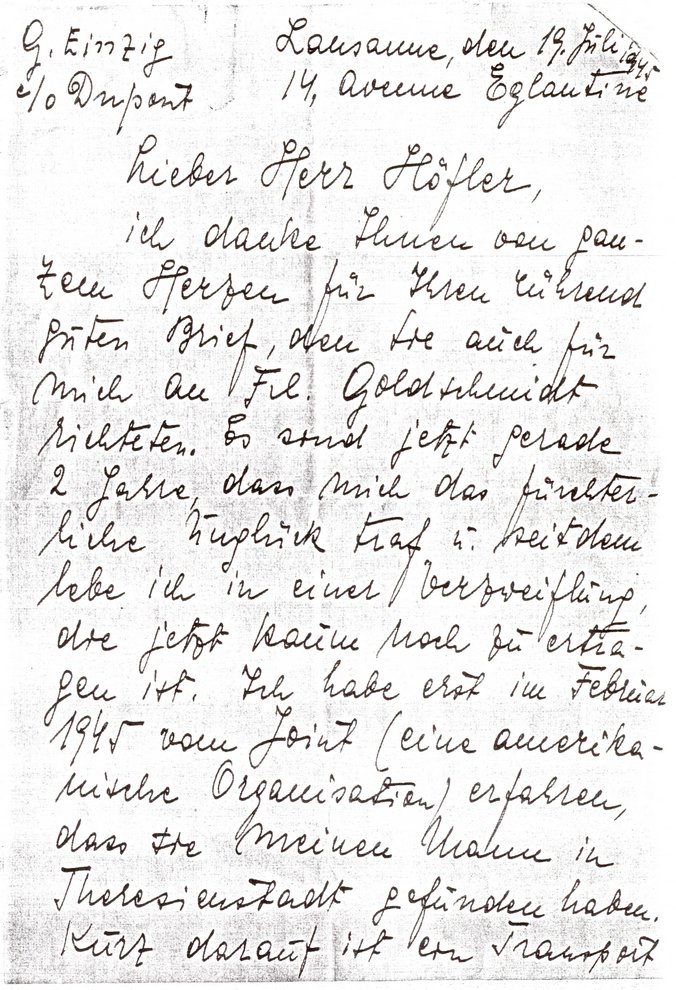 G. Einzig Lausanne, den 19. Juli 1945
c/o Dupont 14, Avenue Eglantine
Lieber Herr Höfler,
ich danke Ihnen von gan-
zem Herzen für Ihren rührend
guten Brief, den Sie auch für
mich an Frl. Goldschmidt
richteten. Es sind jetzt gerade
2 Jahre, dass mich das fürchter-
liche Unglück traf u. seitdem
lebe ich in einer Verzweiflung,
die jetzt kaum noch zu ertra-
gen ist. Ich habe erst im Februar
1945 vom Joint (eine amerika-
nische Organisation) erfahren,
dass Sie meinen Mann in
Theresienstadt gefunden haben.
Kurz darauf ist ein Transport